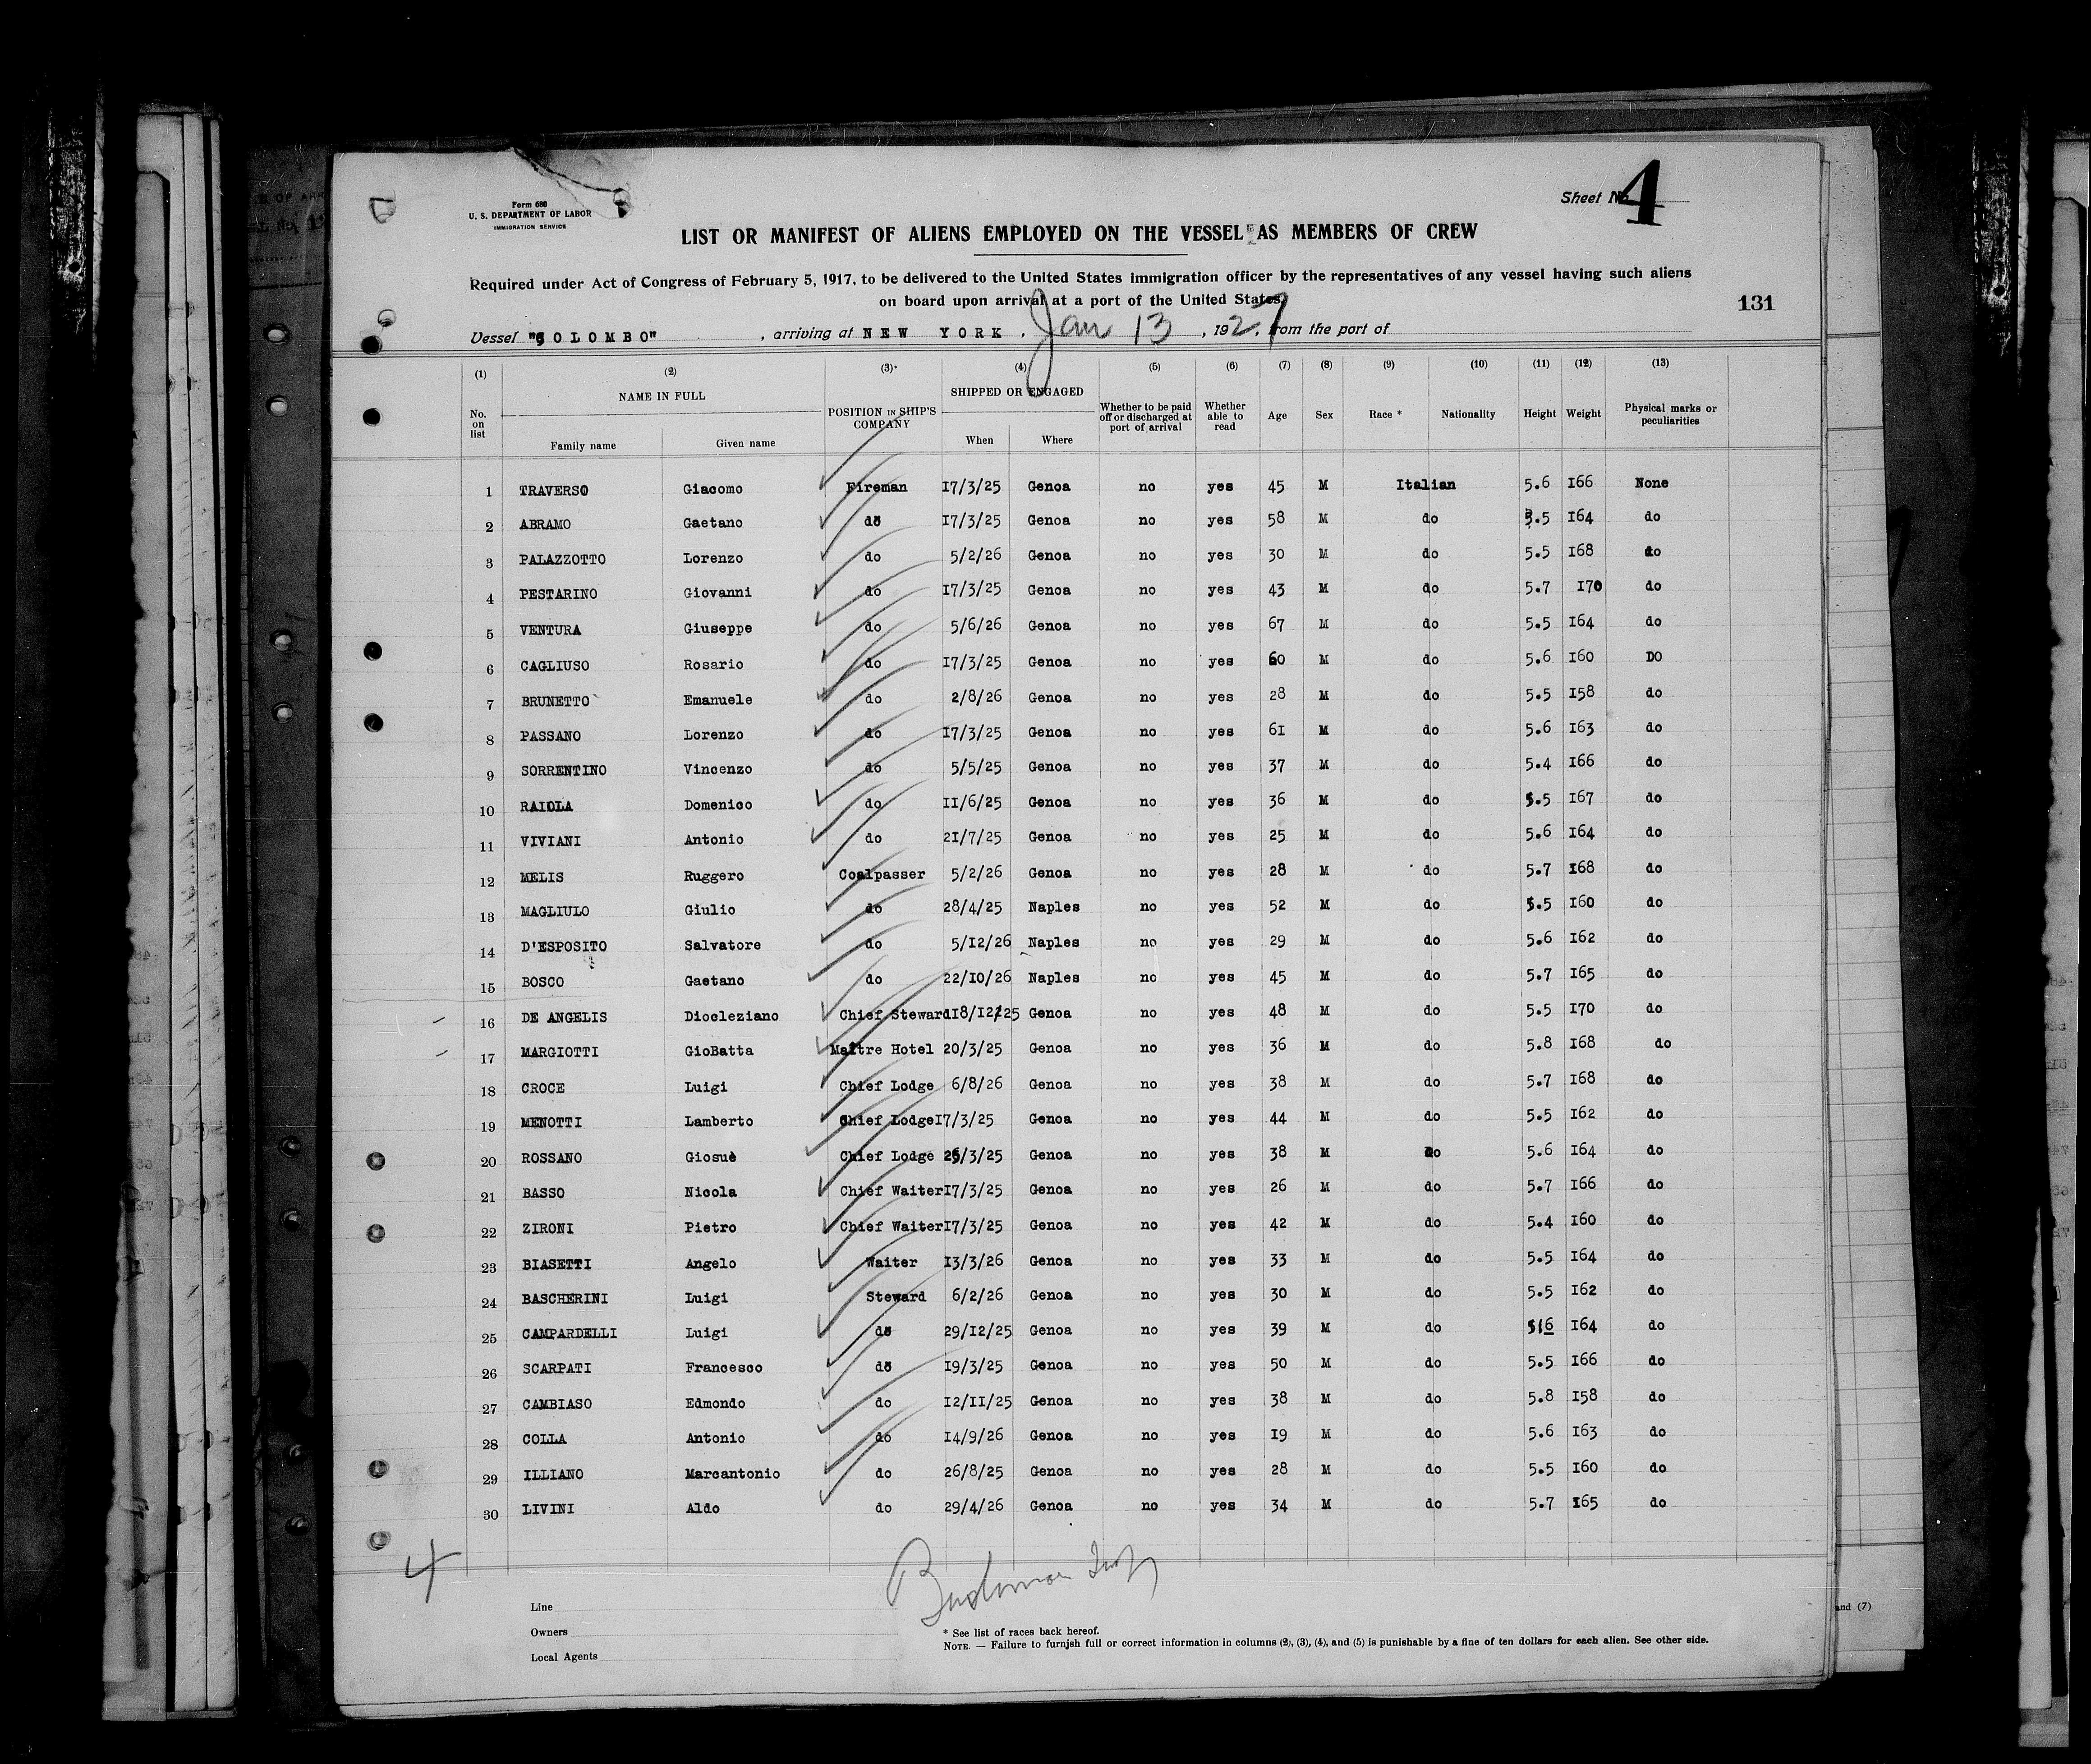 Form 680
U. S. DEPARTMENT OF LABOR
IMMIGRATION SERVICE
Sheet No. 4
LIST OR MANIFEST OF ALIENS EMPLOYED ON THE VESSEL AS MEMBERS OF CREW
Required under Act of Congress of February 5, 1917, to be delivered to the United States immigration officer by the representatives of any vessel having such aliens
on board upon arrival at a port of the United States
131
Vessel "COLOMBO", arriving at NEW YORK. Jan 13, 1927, from the port of
(1) (2) (3) (4) (5) (6) (7) (8) (9) (10) (11) (12) (13)
No. on list NAME IN FULL Family name Given name POSITION IN SHIP'S COMPANY SHIPPED OR ENGAGED When Where Whether to be paid off or discharged at port of arrival Whether able to read Age Sex Race * Nationality Height Weight Physical marks or peculiarities
1 TRAVERSO Giacomo Fireman 17/3/25 Genoa no yes 45 M Italian 5.6 166 None
2 ABRAMO Gaetano do 17/3/25 Genoa no yes 58 M do 5.5 164 do
3 PALAZZOTTO Lorenzo do 5/2/26 Genoa no yes 30 M do 5.5 168 do
4 PESTARINO Giovanni do 17/3/25 Genoa no yes 43 M do 5.7 170 do
5 VENTURA Giuseppe do 5/6/26 Genoa no yes 67 M do 5.5 164 do
6 CAGLIUSO Rosario do 17/3/25 Genoa no yes 60 M do 5.6 160 DO
7 BRUNETTO Emanuele do 2/8/26 Genoa no yes 28 M do 5.5 158 do
8 PASSANO Lorenzo do 17/3/25 Genoa no yes 61 M do 5.6 163 do
9 SORRENTINO Vincenzo do 5/5/25 Genoa no yes 37 M do 5.4 166 do
10 RAIOLA Domenico do 11/6/25 Genoa no yes 36 M do 5.5 167 do
11 VIVIANI Antonio do 21/7/25 Genoa no yes 25 M do 5.6 164 do
12 MELIS Ruggero Coalpasser 5/2/26 Genoa no yes 28 M do 5.7 168 do
13 MAGLIULO Giulio do 28/4/25 Naples no yes 52 M do 5.5 160 do
14 D'ESPOSITO Salvatore do 5/12/26 Naples no yes 29 M do 5.6 162 do
15 BOSCO Gaetano do 22/10/26 Naples no yes 45 M do 5.7 165 do
16 DE ANGELIS Diocleziano Chief Steward 18/12/25 Genoa no yes 48 M do 5.5 170 do
17 MARGIOTTI GioBatta Maître Hotel 20/3/25 Genoa no yes 36 M do 5.8 168 do
18 CROCE Luigi Chief Lodge 6/8/26 Genoa no yes 38 M do 5.7 168 do
19 MENOTTI Lamberto Chief Lodge 17/3/25 Genoa no yes 44 M do 5.5 162 do
20 ROSSANO Giosuè Chief Lodge /3/25 Genoa no yes 38 M do 5.6 164 do
21 BASSO Nicola Chief Waiter 17/3/25 Genoa no yes 26 M do 5.7 166 do
22 ZIRONI Pietro Chief Waiter 17/3/25 Genoa no yes 42 M do 5.4 160 do
23 BIASETTI Angelo Waiter 13/3/26 Genoa no yes 33 M do 5.5 164 do
24 BASCHERINI Luigi Steward 6/2/26 Genoa no yes 30 M do 5.5 162 do
25 CAMPARDELLI Luigi do 29/12/25 Genoa no yes 39 M do 5.6 164 do
26 SCARPATI Francesco do 19/3/25 Genoa no yes 50 M do 5.5 166 do
27 CAMBIASO Edmondo do 12/11/25 Genoa no yes 38 M do 5.8 158 do
28 COLLA Antonio do 14/9/26 Genoa no yes 19 M do 5.6 163 do
29 ILLIANO Marcantonio do 26/8/25 Genoa no yes 28 M do 5.5 160 do
30 LIVINI Aldo do 29/4/26 Genoa no yes 34 M do 5.7 165 do
4
Line
Owners
Local Agents
* See list of races back hereof.
NOTE. — Failure to furnish full or correct information in columns (2), (3), (4), and (5) is punishable by a fine of ten dollars for each alien. See other side.
and (7)